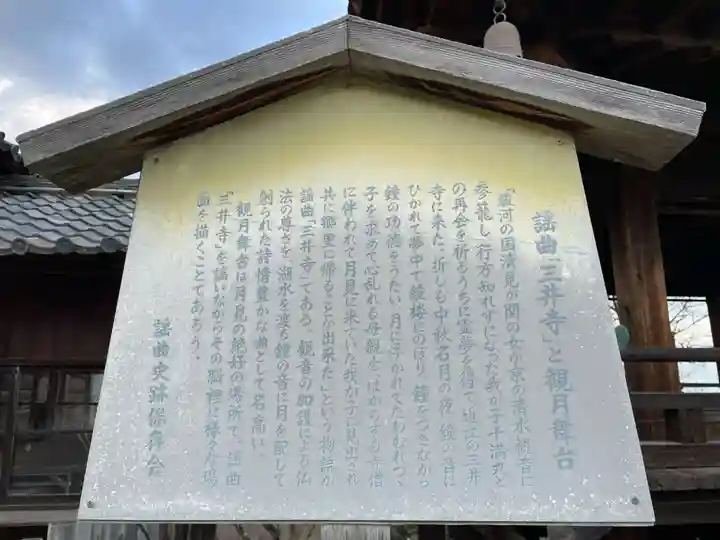 謡曲「三井寺」と観月舞台
「駿河の国清見が関の女が京の清水観音に
参籠し、行方知れずになった我が子千満丸と
の再会を祈るうちに霊夢を得て、近江の三井
寺に来た。折しも中秋名月の夜、鐘の音に
ひかれて夢中で鐘楼にのぼり、鐘をつきながら
鐘の功徳をうたい、月に浮かれてたわむれつゝ
子を求めて心乱れる母親を、はからずも寺僧
に伴われて月見に来ていた我が子に見出され
共に郷里に帰ることが出来た」という物語が
謡曲「三井寺」である。観音の御護による仏
法の尊さを、湖水を渡る鐘の音に月を配して
創られた詩情豊かな曲として名高い。
観月舞台は月見の絶好の場所で、謡曲
「三井寺」を謡いながらその脳裡に様々な場
面を描くことであろう。
謡曲史跡保存会